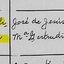 José de Jesús
Mª Gertrudi